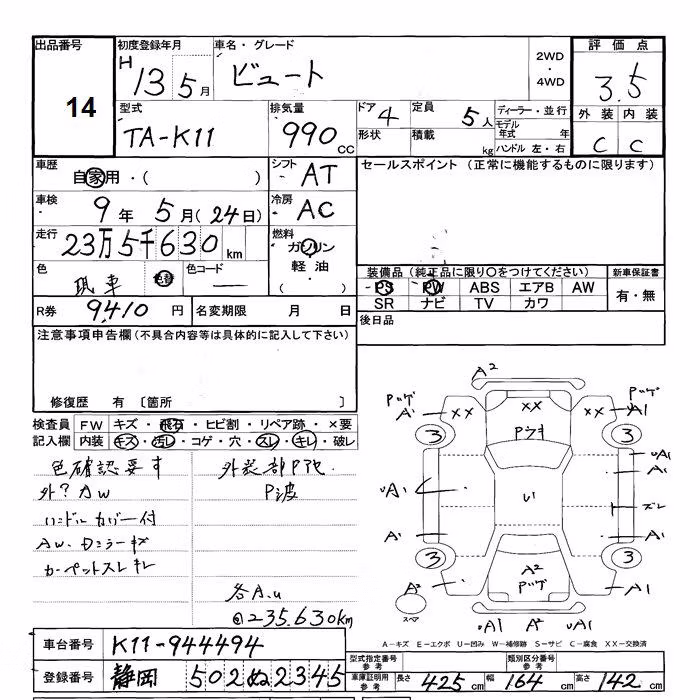 出品番号 初度登録年月 車名・グレード 2WD・4WD 評価点
14 H 13 5月 ビュート 3.5
型式 TA-K11 排気量 990 CC ドア 4 定員 5人 ディーラー・並行 外装 内装
形状 積載 kg モデル年式 年 ハンドル 左・右 C C
車歴 自家用・( ) シフト AT セールスポイント (正常に機能するものに限ります)
車検 9年5月(24日) 冷房 AC
走行 23万5千630km 燃料 ガソリン
軽油
( )
色 現車 色替 色コード ―
装備品 (純正品に限り○をつけてください) 新車保証書
PS PW ABS エアB AW 有・無
SR ナビ TV カワ
R券 9,410 円 名変期限 月 日
後日品
注意事項申告欄 (不具合内容等は具体的に記入して下さい)
修復歴 有 〔箇所 〕
検査員 FW キズ・飛石・ヒビ割・リペア跡・×要
記入欄 内装 キズ・汚レ・コゲ・穴・スレ・キレ・破レ
色確認要す
外?カW
ハンドルカバー付
AW.
カーペットスレキレ
外装部P
P波
各A.U
235.630km
A2
A1 XX XX XX A1
3 3
Pウキ
UA1 UA1
A1
い ズレ
A1 A1
3 3
A2 A2 A1
Pハゲ
スペア
UA1 UA1
A-キズ E-エクボ U-凹み W-補修跡 S-サビ C-腐食 XX-交換済
車台番号 K11-944494
登録番号 静岡 502 ぬ 2345
型式指定番号 参考 類別区分番号 参考
車庫証明用 参考 長さ 425 cm 幅 164 cm 高さ 142 cm